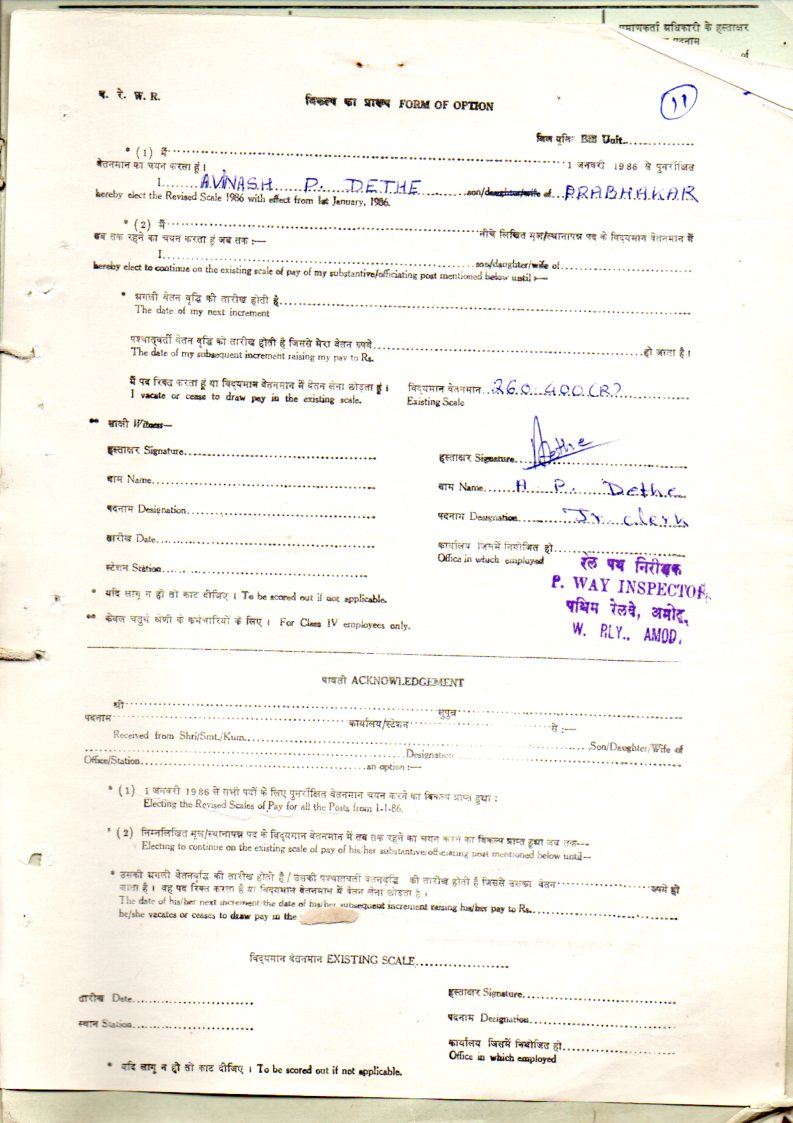 प्रमाणकर्ता अधिकारी के हस्ताक्षर
पदनाम
of
प. रे. W. R.
विकल्प का प्रारूप FORM OF OPTION
11
बिल यूनिट Bill Unit..............
* (1) मैं.............................. 1 जनवरी 1986 से पुनरीक्षित
वेतनमान का चयन करता हूं।
I........AVINASH P. DETHE........son/daughter/wife of PRABHAKAR
hereby elect the Revised Scale 1986 with effect from 1st January, 1986.
* (2) मैं..............................नीचे लिखित मूल/स्थानापन्न पद के विद्यमान वेतनमान में
तब तक रहने का चयन करता हूं जब तक :—
I..............................son/daughter/wife of..............................
hereby elect to continue on the existing scale of pay of my substantive/officiating post mentioned below until :—
* अगली वेतन वृद्धि की तारीख होती है..............................
The date of my next increment
पश्चात्वर्ती वेतन वृद्धि की तारीख होती है जिससे मेरा वेतन रुपये..............................हो जाता है।
The date of my subsequent increment raising my pay to Rs.
मैं पद रिक्त करता हूं या विद्यमान वेतनमान में वेतन लेना छोड़ता हूं। विद्यमान वेतनमान...260-400 (R)..............
I vacate or cease to draw pay in the existing scale. Existing Scale
** साक्षी Witness—
हस्ताक्षर Signature.............................. हस्ताक्षर Signature...Dethe
नाम Name.............................. नाम Name......A. P. Dethe
पदनाम Designation.............................. पदनाम Designation......Jr. clerk
तारीख Date.............................. कार्यालय जिसमें नियोजित हो..............................
Office in which employed
स्टेशन Station..............................
रेल पथ निरीक्षक
P. WAY INSPECTOR,
पश्चिम रेलवे, अमोद,
W. RLY., AMOD.
* यदि लागू न हो तो काट दीजिए। To be scored out if not applicable.
** केवल चतुर्थ श्रेणी के कर्मचारियों के लिए। For Class IV employees only.
पावती ACKNOWLEDGEMENT
श्री..............................सुपुत्र..............................
पदनाम..............................कार्यालय/स्टेशन..............................से :—
Received from Shri/Smt./Kum..............................,Son/Daughter/Wife of
..............................Designation..............................
Office/Station..............................an option :—
* (1) 1 जनवरी 1986 से सभी पदों के लिए पुनरीक्षित वेतनमान चयन करने का विकल्प प्राप्त हुआ :
Electing the Revised Scales of Pay for all the Posts from 1-1-86.
* (2) निम्नलिखित मूल/स्थानापन्न पद के विद्यमान वेतनमान में तब तक रहने का चयन करने का विकल्प प्राप्त हुआ जब तक—
Electing to continue on the existing scale of pay of his/her substantive/officiating post mentioned below until—
* उसकी अगली वेतनवृद्धि की तारीख होती है / उसकी पश्चातवर्ती वेतनवृद्धि की तारीख होती है जिससे उसका वेतन..............रुपये हो
जाता है। वह पद रिक्त करता है या विद्यमान वेतनमान में वेतन लेना छोड़ता है।
The date of his/her next increment/the date of his/her subsequent increment raising his/her pay to Rs..............................
he/she vacates or ceases to draw pay in the
विद्यमान वेतनमान EXISTING SCALE..............................
तारीख Date.............................. हस्ताक्षर Signature..............................
स्थान Station.............................. पदनाम Designation..............................
कार्यालय जिसमें नियोजित हो..............................
Office in which employed
* यदि लागू न हो तो काट दीजिए। To be scored out if not applicable.